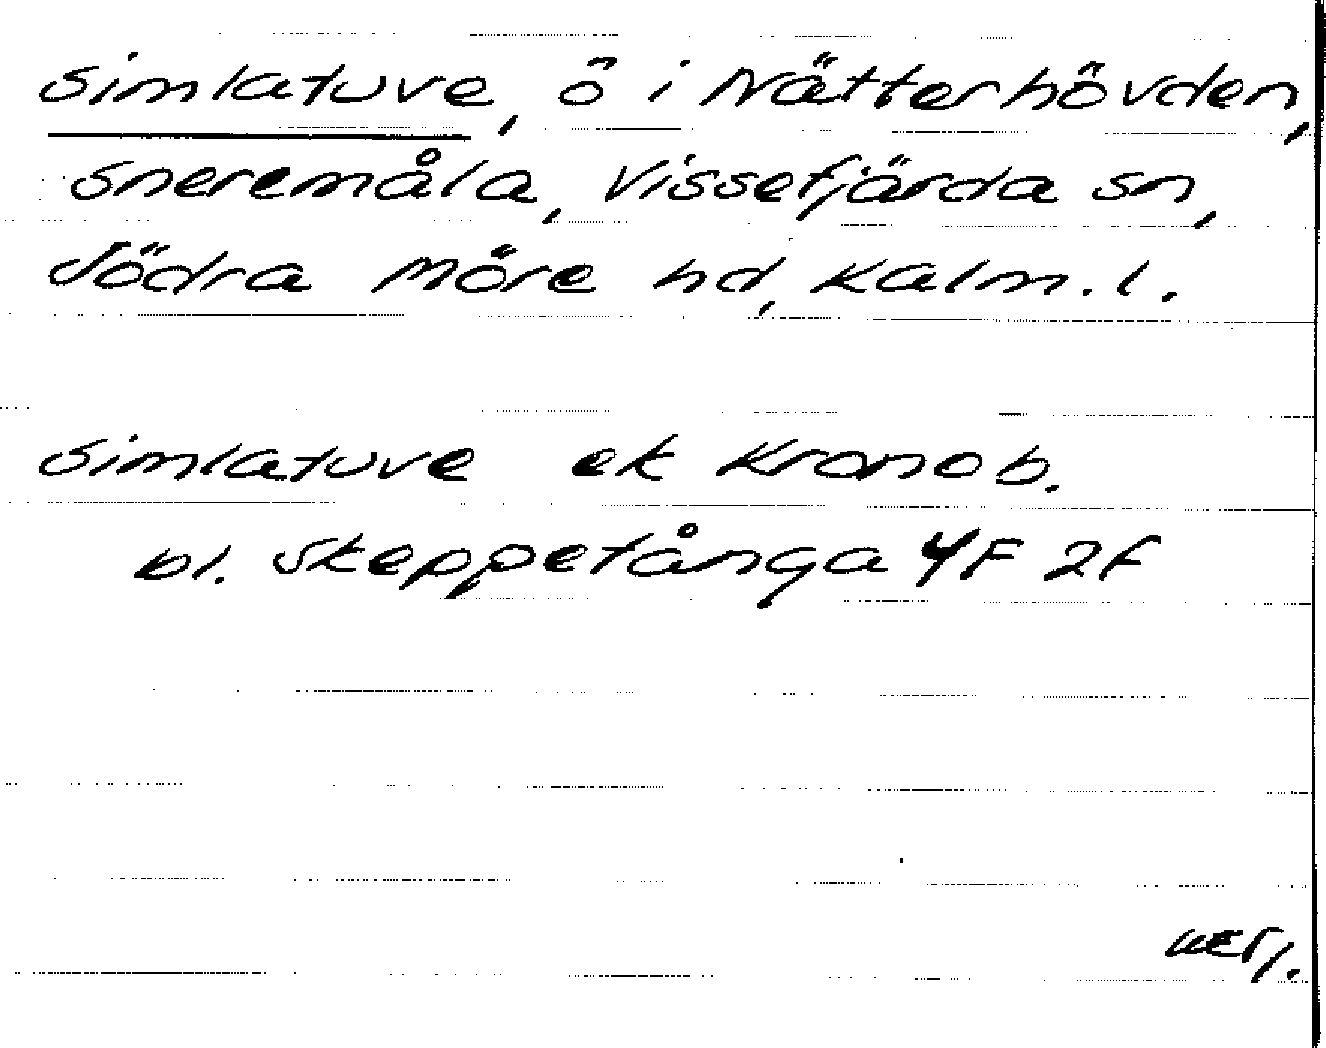 Simlatuve, ö i Nätterhövden,
Sneremåla, Vissefjärda sn,
Södra Möre hd, Kalm. l.
Simlatuve ek Kronob.
bl. Skeppetånga 4F 2f